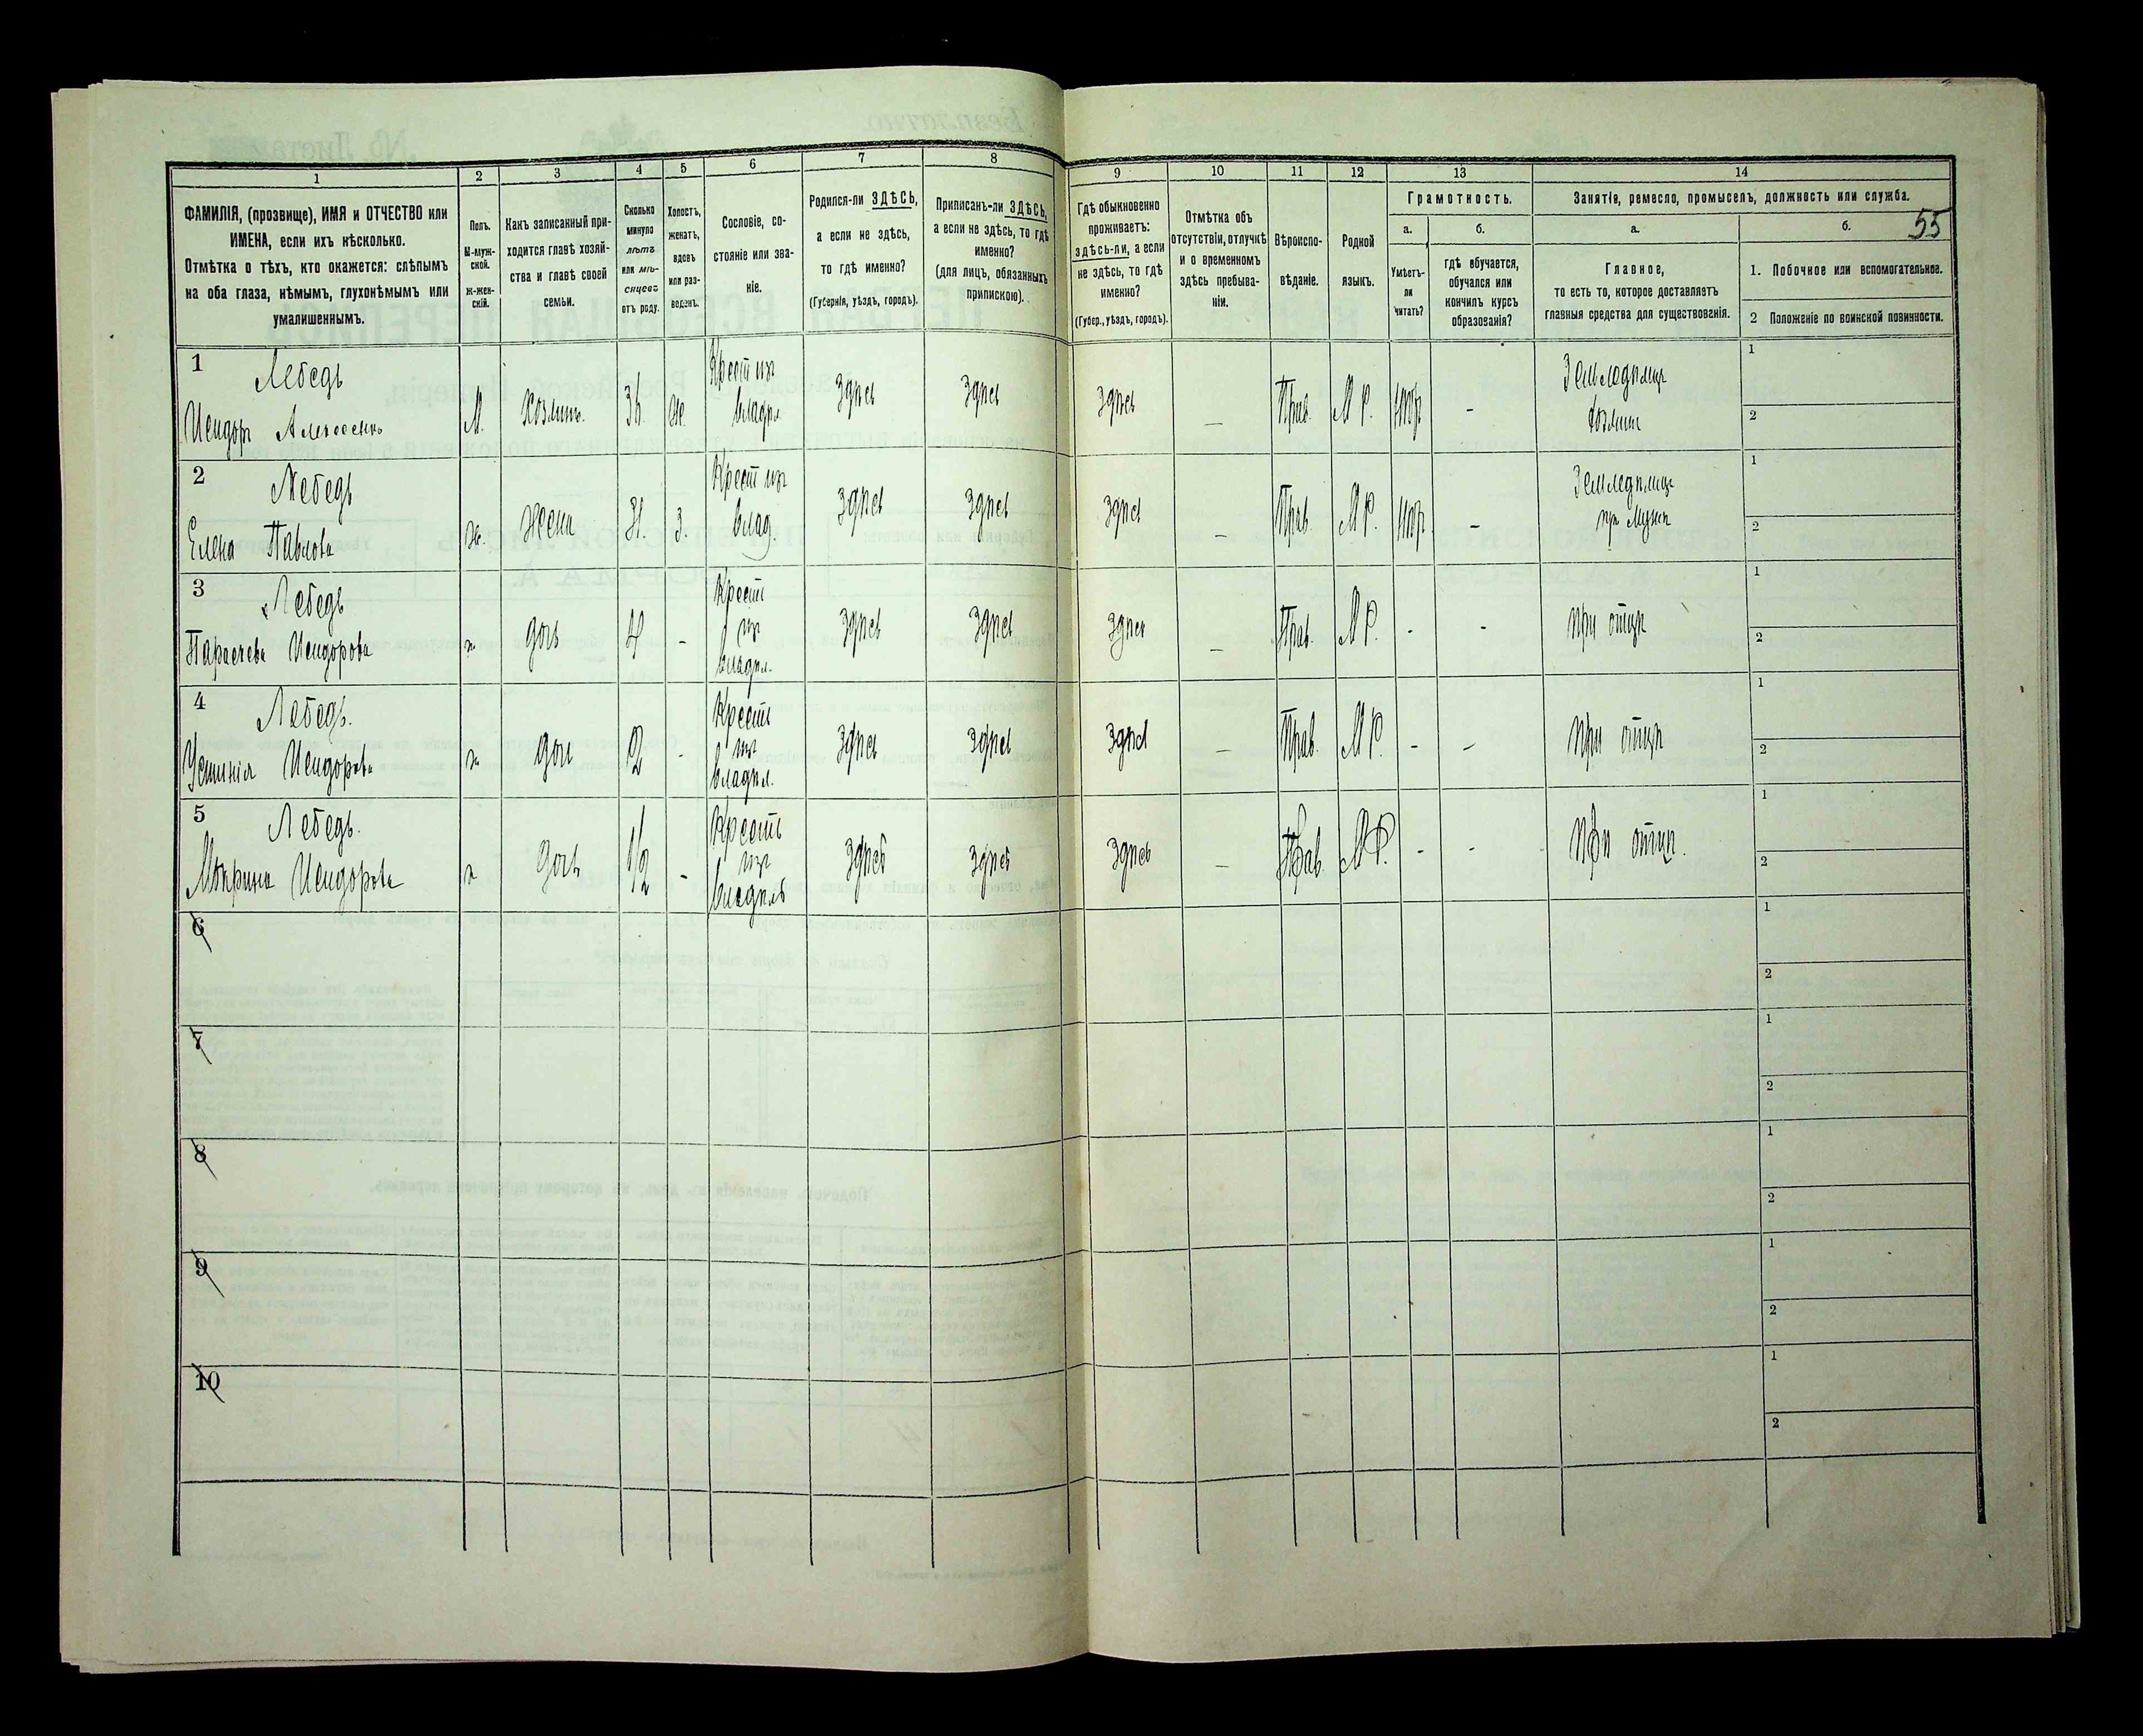 55
1 2 3 4 5 6 7 8 9 10 11 12 13 14
ФАМИЛІЯ, (прозвище), ИМЯ и ОТЧЕСТВО или
ИМЕНА, если ихъ нѣсколько.
Отмѣтка о тѣхъ, кто окажется: слѣпымъ
на оба глаза, нѣмымъ, глухонѣмымъ или
умалишеннымъ.
Полъ.
М-муж-
ской.
Ж-жен-
скій.
Какъ записанный при-
ходится главѣ хозяй-
ства и главѣ своей
семьи.
Сколько
минуло
лѣтъ
или мѣ-
сяцевъ
отъ роду.
Холостъ,
женатъ,
вдовъ
или раз-
веденъ.
Сословіе, со-
стояніе или зва-
ніе.
Родился-ли ЗДѢСЬ,
а если не здѣсь,
то гдѣ именно?
(Губернія, уѣздъ, городъ).
Приписанъ-ли ЗДѢСЬ,
а если не здѣсь, то гдѣ
именно?
(для лицъ, обязанныхъ
припискою).
Гдѣ обыкновенно
проживаетъ:
здѣсь-ли, а если
не здѣсь, то гдѣ
именно?
(Губер., уѣздъ, городъ).
Отмѣтка объ
отсутствіи, отлучкѣ
и о временномъ
здѣсь пребыва-
ніи.
Вѣроиспо-
вѣданіе.
Родной
языкъ.
Грамотность.
а.
Умѣетъ-
ли
читать?
б.
гдѣ обучается,
обучался или
кончилъ курсъ
образованія?
Занятіе, ремесло, промыселъ, должность или служба.
а.
Главное,
то есть то, которое доставляетъ
главныя средства для существованія.
б.
1. Побочное или вспомогательное.
2 Положеніе по воинской повинности.
1 Лебедь
Исидоръ М. хозяинъ 36. ж. Крест изъ владѣл. Здѣсь Здѣсь Здѣсь – Прав. М Р. нѣт - Земледѣлецъ хозяин 1 2
2 Лебедь
Елена Павлова ж. жена 31. з. Крест изъ влад. Здѣсь Здѣсь Здѣсь – Прав. М Р. нѣт – Земледѣлец при мужѣ 1 2
3 Лебедь
Параскева Исидорова ж дочь 4 - Крест изъ владѣл. Здѣсь Здѣсь Здѣсь – Прав. М Р. - - При отцѣ 1 2
4 Лебедь.
Устинія Исидорова ж дочь 2 - Крест изъ владѣл. Здѣсь Здѣсь Здѣсь – Прав. М Р. - - При отцѣ 1 2
5 Лебедь.
Исидорова ж дочь 1/2 - Крест изъ владѣль Здѣсь Здѣсь Здѣсь – Прав. М Р. - - При отцѣ. 1 2
6 1 2
7 1 2
8 1 2
9 1 2
10 1 2